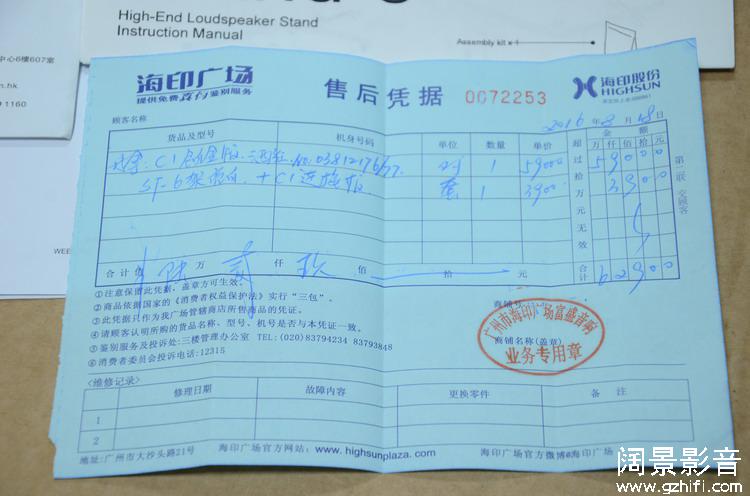 High-End Loudspeaker Stand
Instruction Manual
Assembly kit x 1
中心6樓607室
n.hk
1160
WEE
海印广场
提供免费鉴别服务
售后凭据 0072253
海印股份
HIGHSUN
顾客名称
2016 年 8 月 28 日
货品及型号 机身号码 单位 数量 单价 金额
超过拾万元无效
万 仟 佰 拾 元
C1 NO.0381276/77 对 1 59000 59000
SF-6 + C1 套 1 3900 3900
第二联 交顾客
合计 陆 万 贰 仟 玖 佰 拾 元 合计 62900
①注意保留此凭据,盖章方可生效。
②商品依据国家的《消费者权益保护法》实行“三包”。
③此凭据只作为我广场管辖商店所售商品的凭证。
④请顾客认明所购的货品名称、型号、机身号是否与本凭证一致。
⑤鉴别服务及投诉处:三楼管理办公室 TEL:(020)83794234 83793848
⑥消费者委员会投诉电话:12315
商铺号
商铺名称(盖章)
广州市海印广场富盛音响
业务专用章
〈维修记录〉
修理日期 故障内容 更换零件 备注
1
2
地址:广州市大沙头路21号 海印广场官方网站:www.highsunplaza.com 海印广场官方微博@海印广场
阔景影音
www.gzhifi.com